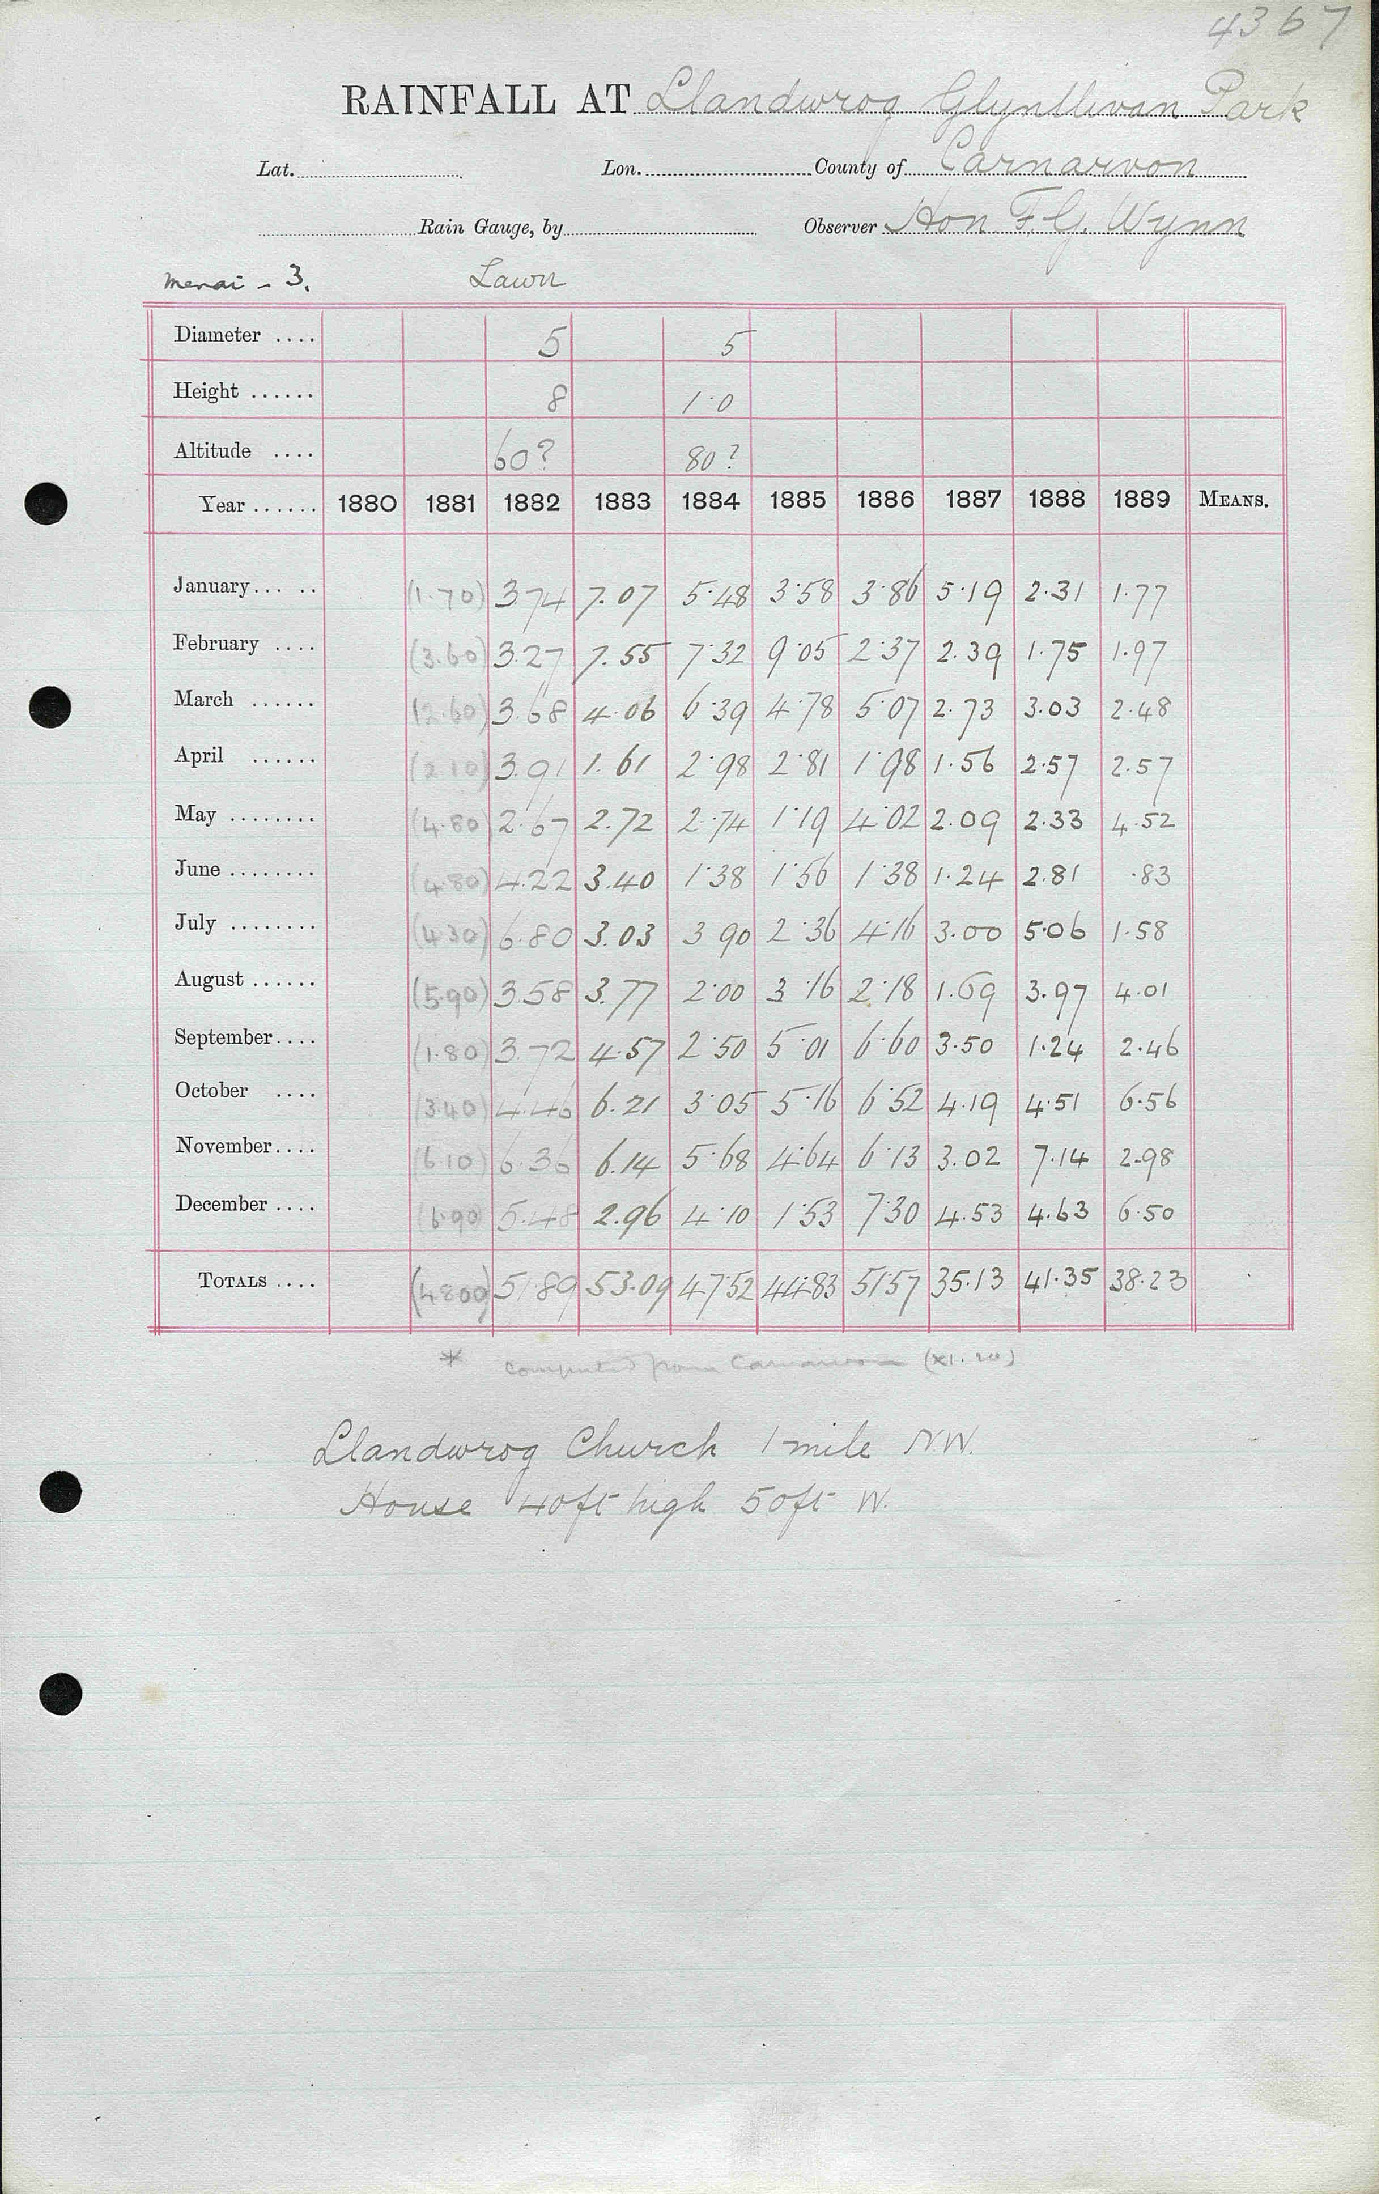 4367
RAINFALL AT Llandwrog Glynllivon Park
Lat. Lon. County of Carnarvon
Rain Gauge, by Observer Hon F. G. Wynn
Menai - 3. Lawn
Diameter .... 5 5
Height ...... 8 1·0
Altitude .... 60? 80?
Year ...... 1880 1881 1882 1883 1884 1885 1886 1887 1888 1889 MEANS.
January... .. (1.70) 3.74 7.07 5.48 3.58 3.86 5.19 2.31 1.77
February .... (3.60) 3.27 7.55 7.32 9.05 2.37 2.39 1.75 1.97
March ...... (2.60) 3.68 4.06 6.39 4.78 5.07 2.73 3.03 2.48
April ...... (2.10) 3.91 1.61 2.98 2.81 1.98 1.56 2.57 2.57
May ........ (4.80) 2.67 2.72 2.74 1.19 4.02 2.09 2.33 4.52
June ........ (4.80) 4.22 3.40 1.38 1.56 1.38 1.24 2.81 .83
July ........ (4.30) 6.80 3.03 3.90 2.36 4.16 3.00 5.06 1.58
August ...... (5.90) 3.58 3.77 2.00 3.16 2.18 1.69 3.97 4.01
September.... (1.80) 3.72 4.57 2.50 5.01 6.60 3.50 1.24 2.46
October .... (3.40) 4.46 6.21 3.05 5.16 6.52 4.19 4.51 6.56
November.... (6.10) 6.36 6.14 5.68 4.64 6.13 3.02 7.14 2.98
December .... (6.90) 5.48 2.96 4.10 1.53 7.30 4.53 4.63 6.50
TOTALS .... (48.00) 51.89 53.09 47.52 44.83 51.57 35.13 41.35 38.23
* computed from Carnarvon
Llandwrog Church 1 mile N.W.
House 40ft high 50ft W.